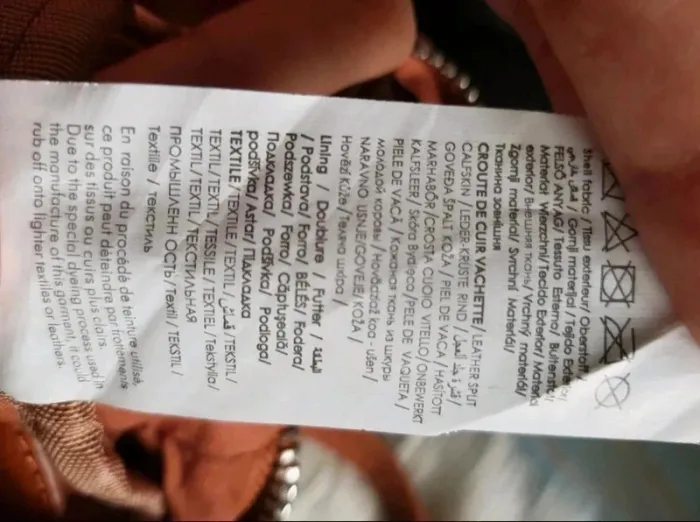 Shell fabric / Tissu exterieur/ Oberstoff/
/ Gornji materijal / Tejido Exterior/
FELSŐ ANYAG/ Tessuto Esterno/ Buitenstof/
Materiał Wierzchni/Tecido Exterior/ Material
exterior/ Внешняя ткань/ Vrchný materiál/
Zgornji material/ Svrchní Materiál/
Тканина зовнішня
CROUTE DE CUIR VACHETTE / LEATHER SPLIT
CALFSKIN / LEDER-KRUSTE RIND /
GOVEĐA ŠPALT KOŽA / PIEL DE VACA / HASÍTOTT
MARHABŐR /CROSTA CUOIO VITELLO/ONBEWERKT
KALFSLEER/ Skóra Bydlęca /PELE DE VAQUETA /
PIELE DE VACĂ / Кожаная ткань из шкуры
молодой коровы / Hovädzia
NARAVNO USNJE/GOVEJE/ KOŽA /
Hovězí kůže / Теляча шкіра /
Lining / Doublure / Futter / البطانة
/ Podstava/ Forro/ BÉLÉS/ Fodera/
Podszewka/ Forro/ Căptușeală/
Подкладка/ Podšívka/ Podloga/
podšívka/ Astar/ Підкладка
TEXTILE / TEXTILE / TEXTIL / قماش / TEKSTIL /
TEXTIL / TEXTIL / TESSILE / TEXTIEL / Tekstylia /
TEXTIL / TEXTIL / ТЕКСТИЛЬНАЯ
ПРОМЫШЛЕНН ОСТЬ / Textil / TEKSTIL /
Textilie / текстиль
En raison du procédé de teinture utilisé,
ce produit peut déteindre par frottements
sur des tissus ou cuirs plus clairs.
Due to the special dyeing process used in
the manufacture of this garment, it could
rub off onto lighter textiles or leathers.